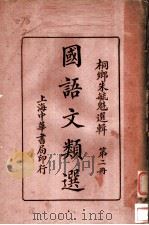 桐鄉朱毓魁選輯 第二册
國語文類選
上海中華書局印行